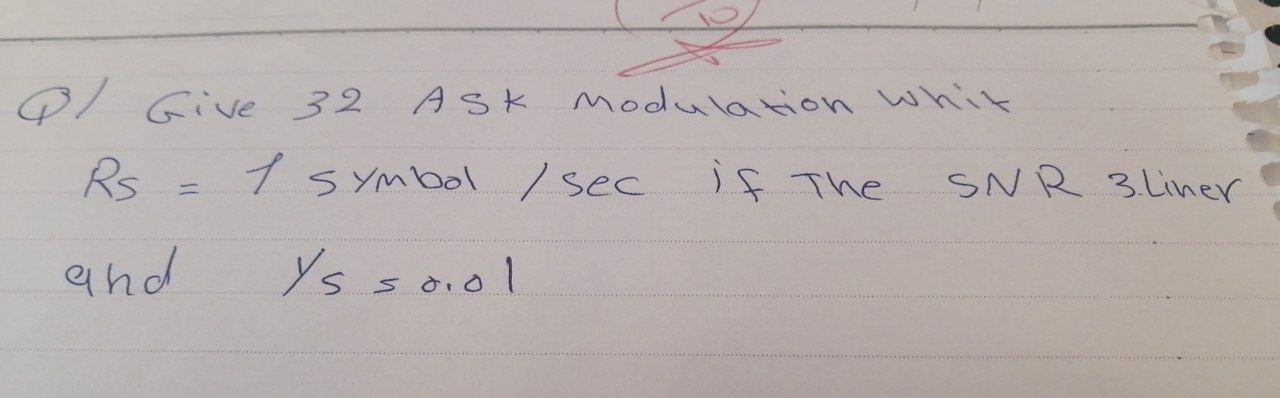 10
Q/ Give 32 ASK Modulation Whit
Rs = 1 symbol /sec if The SNR 3.Liner
and γs = 0.01